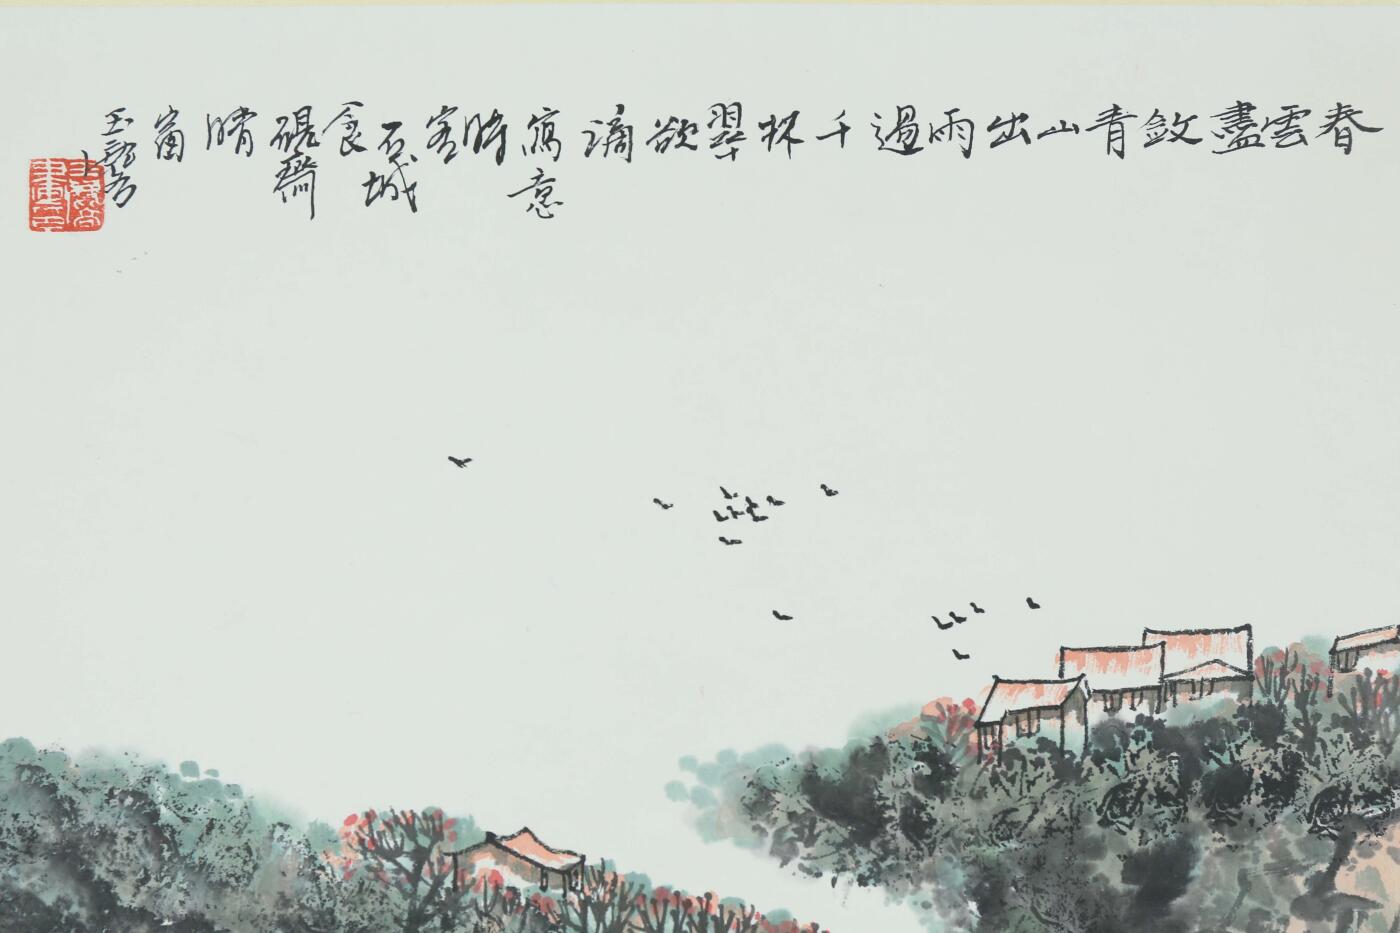 春雲盡斂青山出雨過千林翠欲滴寫意時客石城食硯齋晴窗玉龍